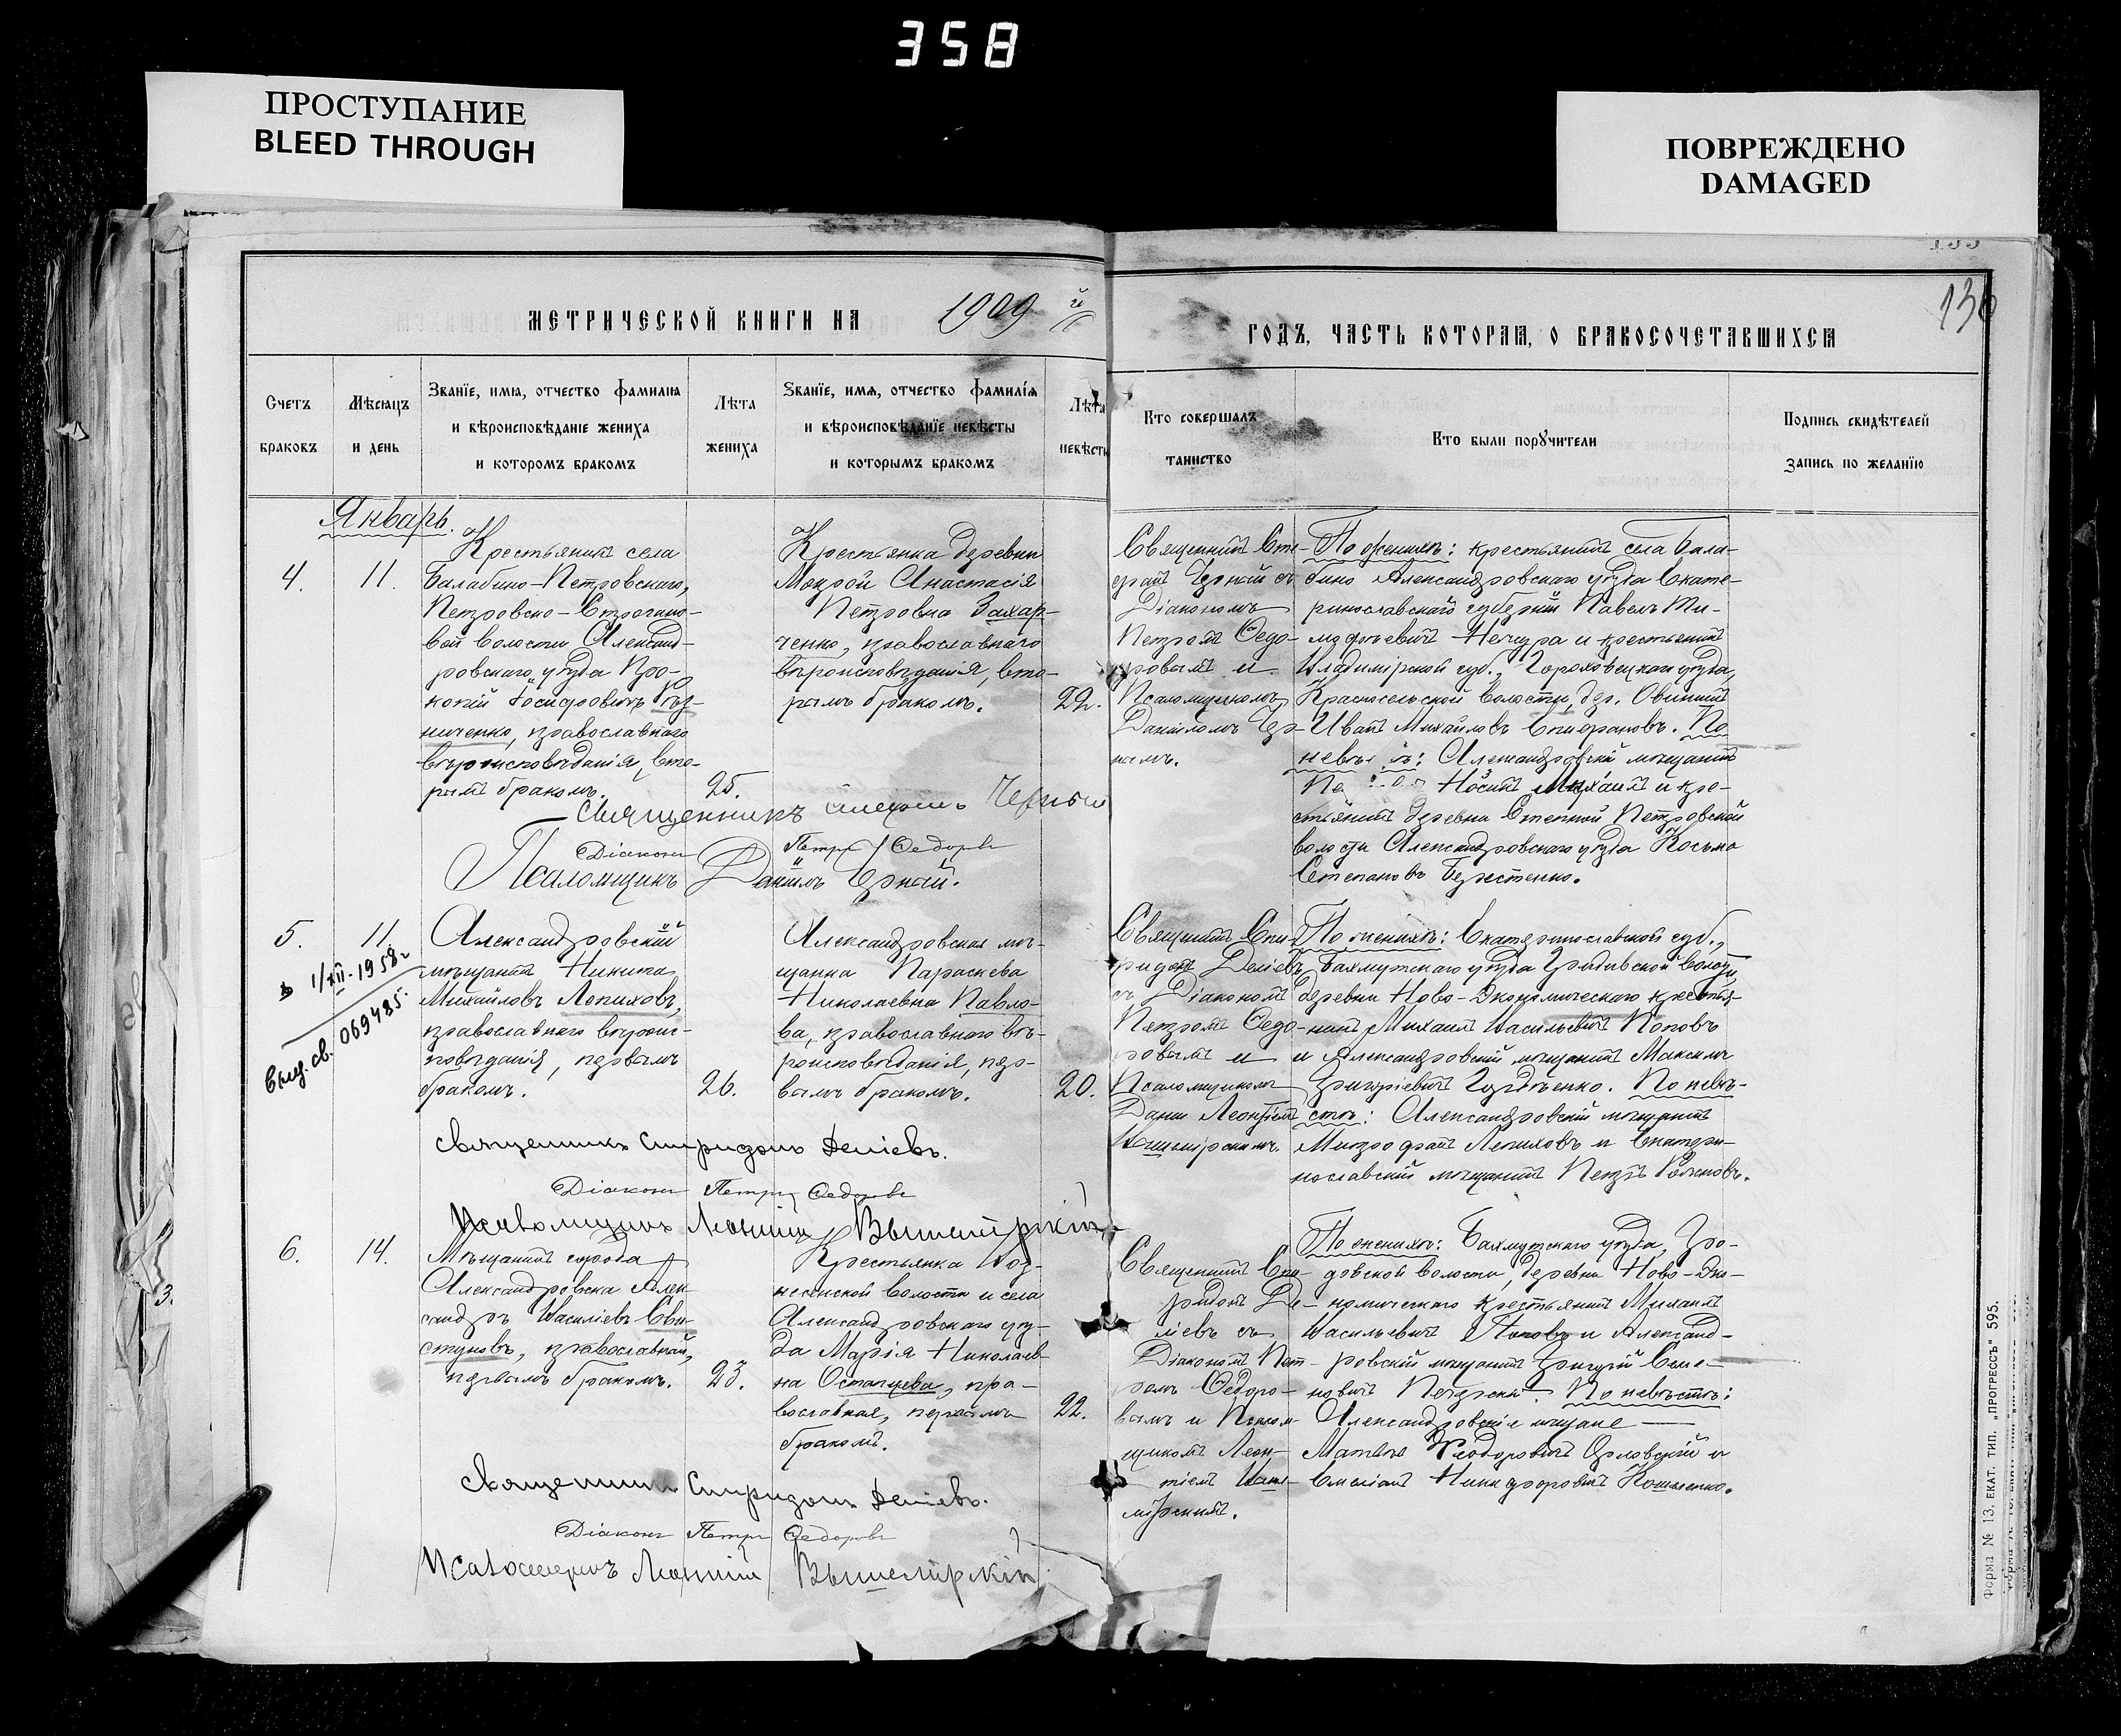 358
ПРОСТУПАНИЕ
BLEED THROUGH
ПОВРЕЖДЕНО
DAMAGED
136
МЕТРИЧЕСКОЙ КНИГИ НА 1909 й
ГОДЪ, ЧАСТЬ КОТОРАЯ, О БРАКОСОЧЕТАВШИХСЯ
Счетъ
браковъ
Мѣсяцъ
и день
Званїе, имя, отчество фамилїя
и вѣроисповѣданїе жениха
и которомъ бракомъ
Лѣта
жениха
Званїе, имя, отчество фамилїя
и вѣроисповѣданїе невѣсты
и которымъ бракомъ
Лѣта
невѣсты
Кто совершалъ
таинство
Кто были порꙋчители
Подпись свидѣтелей
запись по желанїю
Январь.
4.
11.
Крестьянинъ села
Балабино-Петровскаго,
Петровско-Строгано-
вой волости Александ-
ровскаго уѣзда Про-
копій Іосифовичъ Рѣз-
ниченко, православнаго
вѣроисповѣданія, вто-
рымъ бракомъ.
25.
Крестьянка деревни
Мокрой Анастасія
Петровна Захар-
ченко, православнаго
вѣроисповѣданія, вто-
рымъ бракомъ.
22.
Священникъ Сте-
фанъ Черный съ
Діакономъ
Петромъ Ѳедо-
ровымъ и
Псаломщикомъ
Даніиломъ Чер-
нымъ.
По женихѣ: крестьянинъ села Бала-
бино Александровскаго уѣзда Екате-
ринославской губерніи Павелъ Ти-
моѳеевичъ Нечура и крестьянинъ
Владимірской губ., Гороховецкаго уѣзда,
Красносельской волости, дер. Овинищ
Иванъ Михайловъ Спиридоновъ. По
невѣстѣ: Александровскій мѣщанинъ
Носинъ Михаилъ и кре-
стьянинъ деревни Степной Петровской
волости Александровскаго уѣзда Косьма
Степановъ Берестенко.
Священникъ Стефанъ Черный
Діаконъ Петръ Ѳедоровъ
Псаломщикъ Даніилъ Черный.
5.
11.
1/XII-1958г
Выд. св. 069485.
Александровскій
мѣщанинъ Никита
Михайловъ Лепиховъ,
православнаго вѣроис-
повѣданія, первымъ
бракомъ.
26.
Александровская мѣ-
щанка Параскева
Николаевна Павло-
ва, православнаго вѣ-
роисповѣданія, пер-
вымъ бракомъ.
20.
Священникъ Спи-
ридонъ Деліевъ
съ Діакономъ
Петромъ Ѳедо-
ровымъ и
Псаломщикомъ
Леонтіемъ
Вышемірскимъ.
По женихѣ: Екатеринославской губ.,
Бахмутскаго уѣзда Гродовской волости,
деревни Ново-Экономическаго крестья-
нинъ Михаилъ Васильевичъ Поповъ
и Александровскій мѣщанинъ Максимъ
Григоріевичъ Гордѣенко. По невѣ-
стѣ: Александровскій мѣщанинъ
Митрофанъ Лепиховъ и Екатери-
нославскій мѣщанинъ Петръ
Священникъ Спиридонъ Деліевъ.
Діаконъ Петръ Ѳедоровъ
Псаломщикъ Леонтій Вышемірскій
6.
14.
Мѣщанинъ города
Александровска Алек-
сандръ Василіевъ Сви-
стуновъ, православный,
первымъ бракомъ.
23.
Крестьянка Воз-
несенской волости и села
Александровскаго уѣз-
да Марія Николаев-
на Остапцева, пра-
вославная, первымъ
бракомъ.
22.
Священникъ Спи-
ридонъ Де-
ліевъ съ
Діакономъ Пет-
ромъ Ѳедоро-
вымъ и Псалом
щикомъ Леон-
тіемъ Выше-
мірскимъ.
По женихѣ: Бахмутскаго уѣзда, Гро-
довской волости, деревни Ново-Эко-
номическаго крестьянинъ Михаилъ
Васильевичъ Поповъ и Александ-
ровскій мѣщанинъ Григорій Семе-
новичъ Печерскій. По невѣстѣ:
Александровскіе мѣщане
Матвѣй Ѳеодоровичъ Орловскій и
Емеліанъ Никифоровичъ Кошленко.
Священникъ Спиридонъ Деліевъ.
Діаконъ Петръ Ѳедоровъ
Псаломщикъ Леонтій Вышемірскій
Форма № 13. ЕКАТ. ТИП. „ПРОГРЕССЪ" 595.